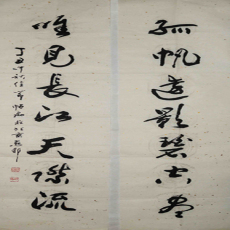 孤帆遠影碧空盡
唯見長江天際流
丁丑